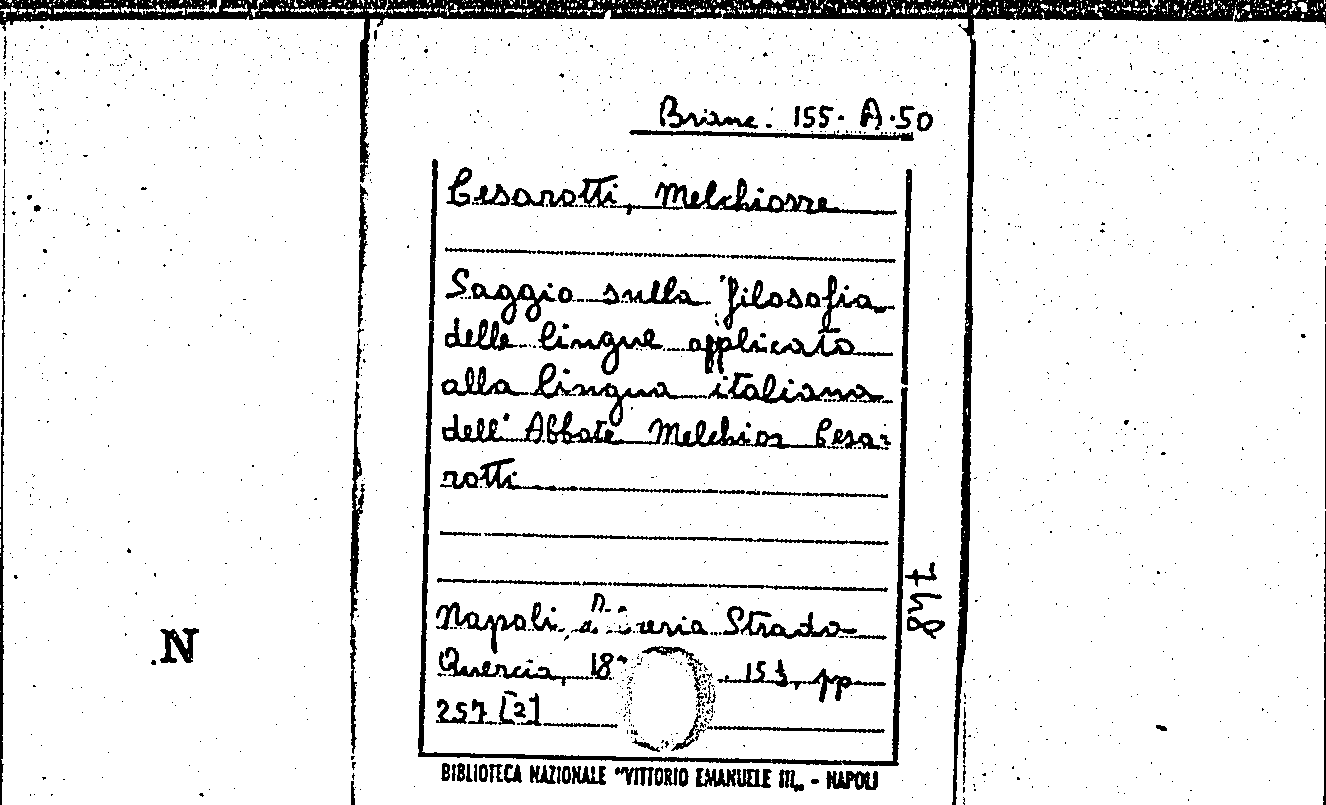 Branc. 155. A. 50
Cesarotti, Melchiorre
Saggio sulla filosofia
delle lingue applicato
alla lingua italiana
dell' Abbate Melchior Cesa-
rotti
847
Napoli, Strada
Quercia, pp
257 [2]
N
BIBLIOTECA NAZIONALE "VITTORIO EMANUELE III„ - NAPOLI